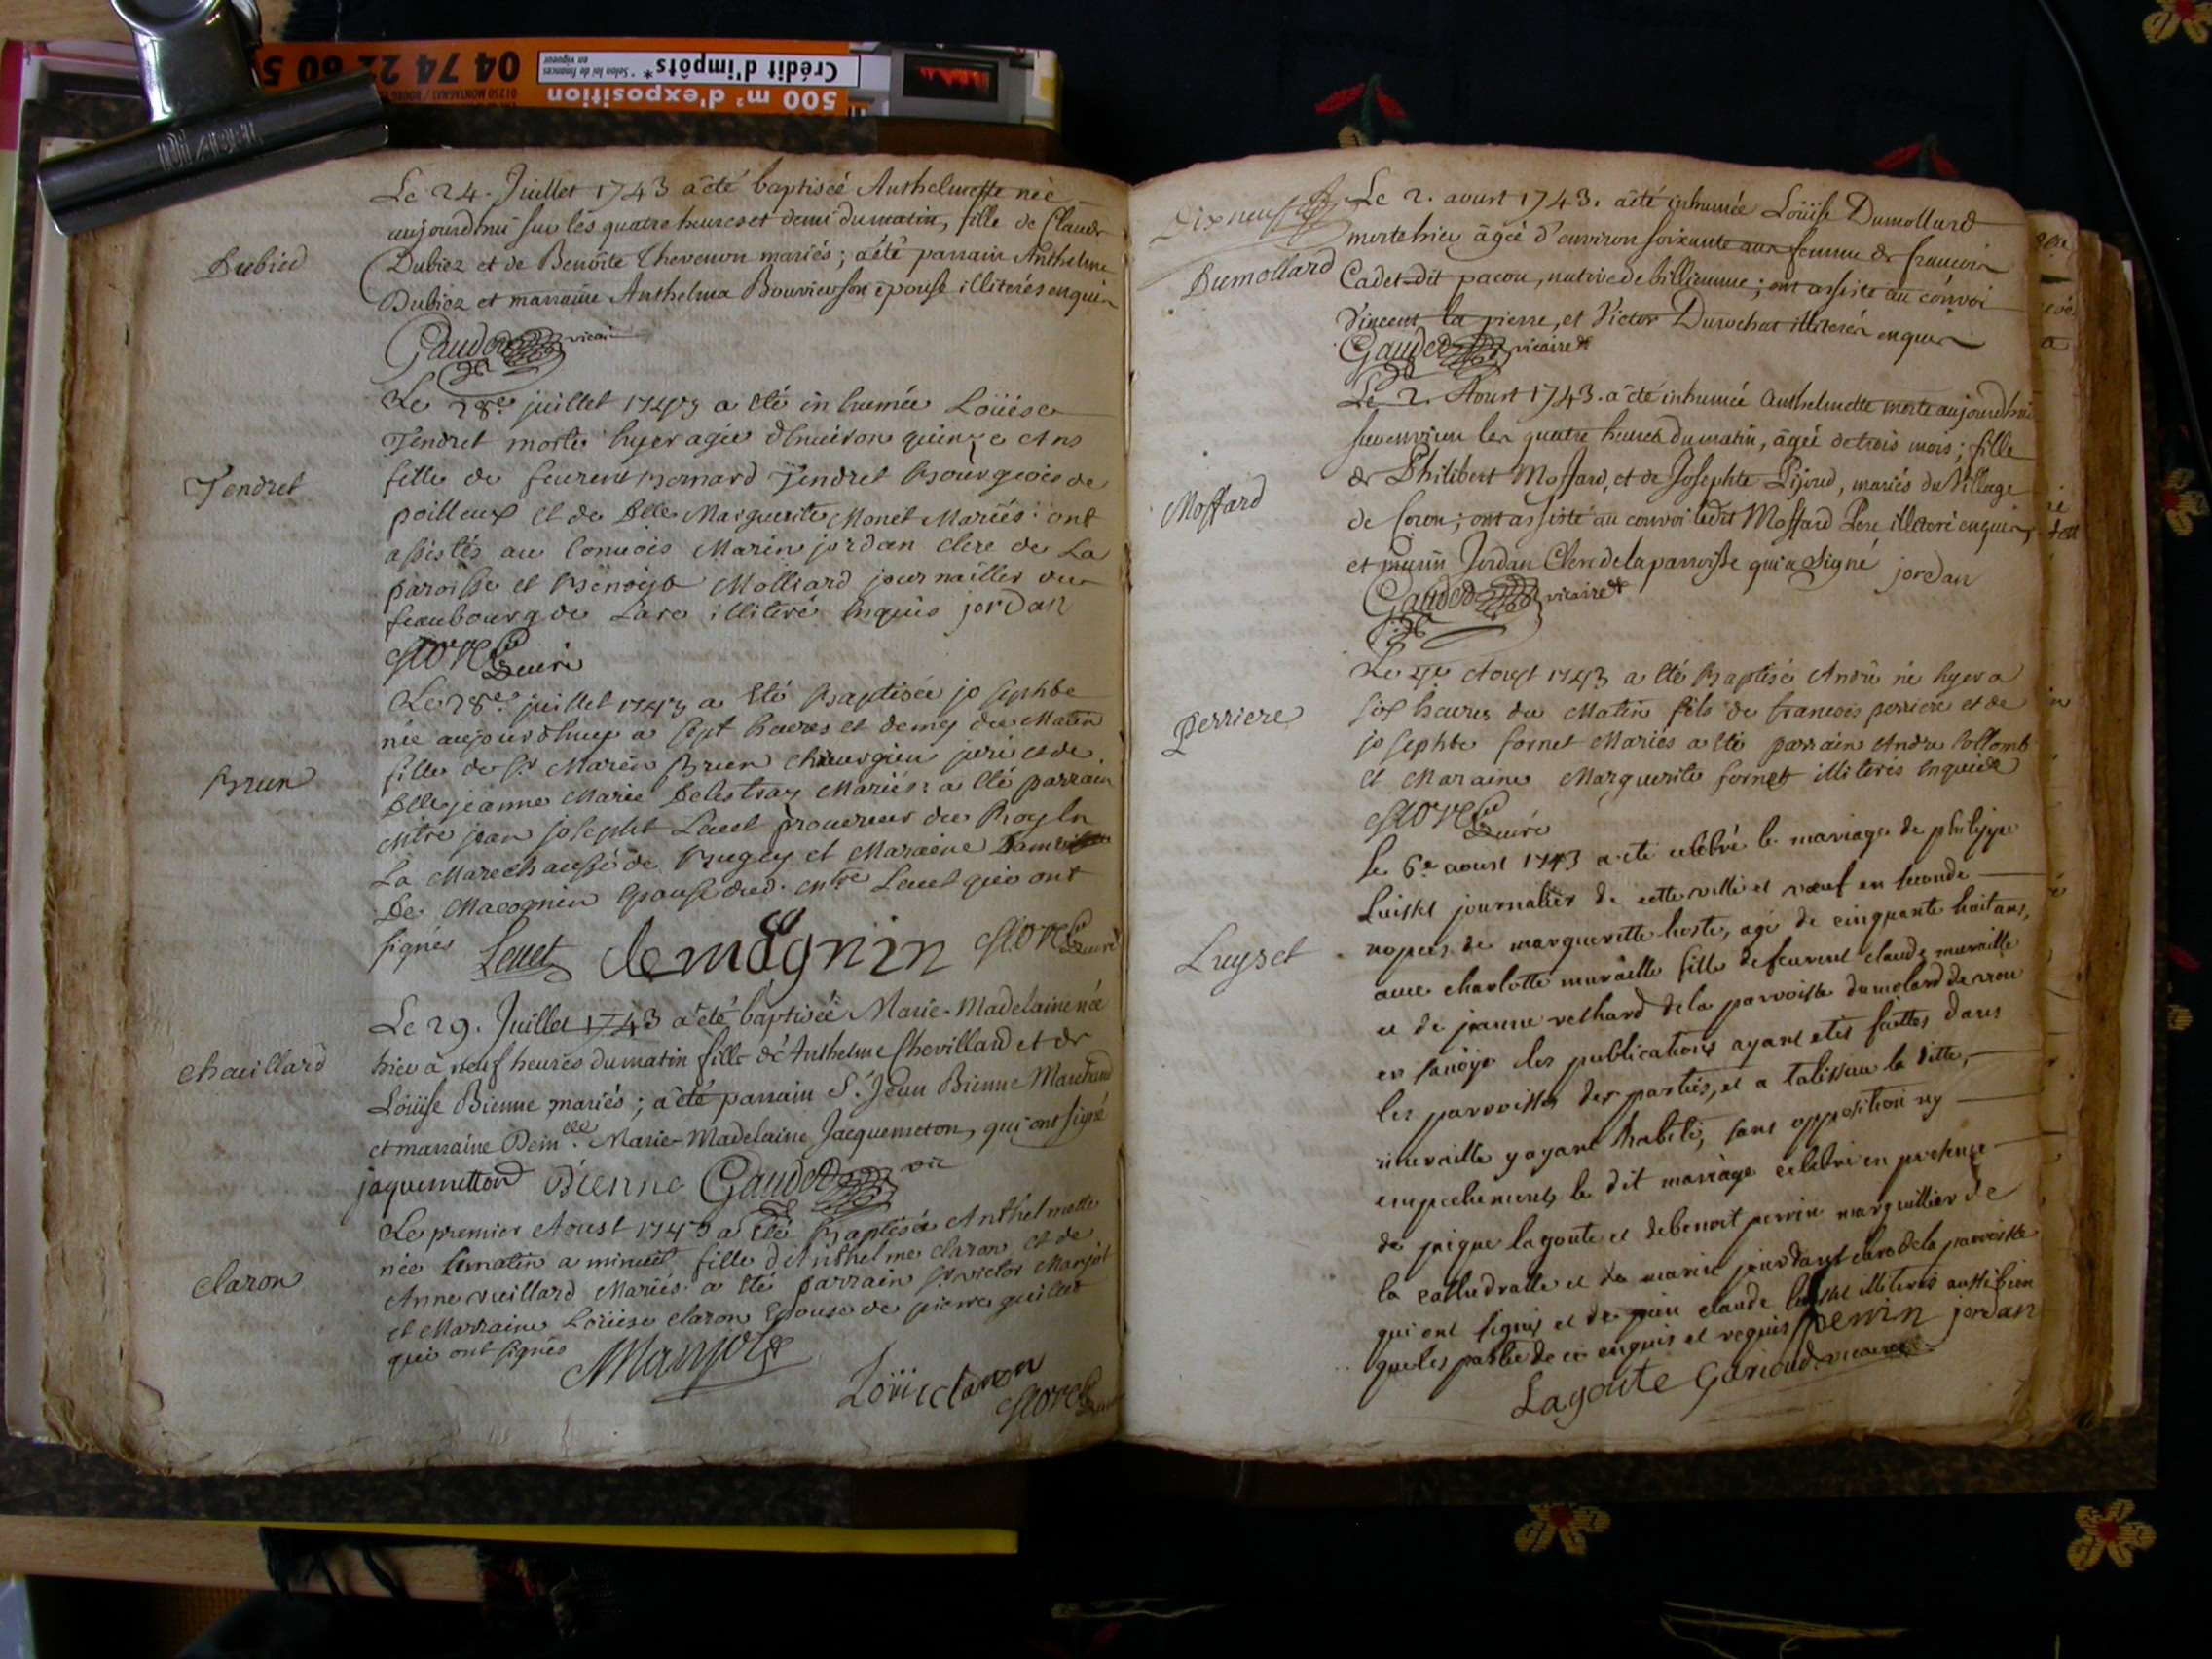 04 74 22 60 5
Crédit d'impôts*
* Selon loi de finances
en vigueur
500 m² d'exposition
01250 MONTAGNAT
Le 24. Juillet 1743 a été baptiseé Anthelmette née
aujourd'huÿ sur les quatre heures et demi du matin, fille de Claude
Dubied
Dubiez et de Benoîte Thevenon mariés; a été parrain Anthelme
Dubiez et marraine Anthelma Bouvier son epouse illiterés enquis
Gaudet vicaire
Le 28e juillet 1743 a été in humée Loüise
Tendret morte hyer agée d'environ quinze ans
Tendret
fille de feu Bernard Tendret Bourgeois de
poilleux et de Dlle Marguerite Monet Mariés ont
assistés au Convois Marin jordan clerc de La
paroisse et Benoist Molliard journallier du
feaubourg de Lare illiteré enquis jordan
curé
Le 28e juillet 1743 a été Baptisée josephte
née aujourdhuy a sept heures et demy du Matin
Brun
fille de Sr Marin Brun chirurgien juré et de
Dlle jeanne Marie Delestraz Mariés: a été parrain
Mtre jean joseph Leuet procureur du Roy en
La Marechaussé de Bugey et Maraine Dame
De Macognin Epouse dud. Mtre Leuet qui ont
signés Leuet demognin curé
Le 29. Juillet 1743 a été baptiseé Marie-Madelaine née
chauillard
hier à neuf heures du matin fille de Anthelme Chevillard et de
Loüise Bienne mariés; a été parrain Sr. Jean Bienne Marchand
et marraine Demlle. Marie-Madelaine Jacquemeton, qui ont signé
jaquemetton Bienne Gaudet vic
Le premier Aoust 1743 a été Baptisée Anthelmette
née Cematin a minuit fille d'Anthelme claron et de
claron
Anne vieillard Mariés a été parrain Sr victor Marjot
et Marraine Loüise claron Epouse de pierre
qui ont signés Marjot
Loüise claron curé
Le 2. aoust 1743. a été inhumée Loüise Dumollard
morte hier âgeé d'environ soixante ans femme de francois
Dumollard
Cadet dit pacou, native de billieume; ont assisté au convoi
Vincent la pierre, et Victor Durochat illiterés enquis
Gaudet vicaire
Le 2. Aoust 1743. a été inhumée Anthelmette morte aujourdhui
sur environ les quatre heures du matin, âgeé de trois mois; fille
Moffard
de Philibert Moffard, et de Josephte Pijoud, mariés du Village
de Coron; ont assisté au convoi ledit Moffard Pere illiteré enquis,
et marin Jordan Clerc de la parroisse qui a signé jordan
Gaudet vicaire
Le 4e Aoust 1743 a été Baptisé André né hyer a
Perriere
six heures du Matin fils de francois perriere et de
josephte fornet Mariés a été parrain André Collomb
et Maraine Marguerite fornet illiterés enquis
curé
Le 6e aoust 1743 a été celebré le mariage de philippe
Luisset journalier de cette ville et veuf en seconde
Luyset
nopces de margueritte hoste, agé de cinquante huit ans,
avec charlotte muraille fille de feu claude muraille
et de jeanne rechard de la parroisse du molard de vion
en savoÿe les publications ayant etés faittes dans
les parroisses des parties, et a talissieu la ditte,
muraille y ayant habité, sans opposition ny
empechement, le dit mariage celebré en presence
de lagoute et de benoit perrin marguillier de
la cathedralle et de marin jourdant clerc de la parroisse
qui ont signés et de claude luisset illiterés aussi bien
que les parties de ce enquis et requis perrin jordan
Lagoute Garioud vicaire